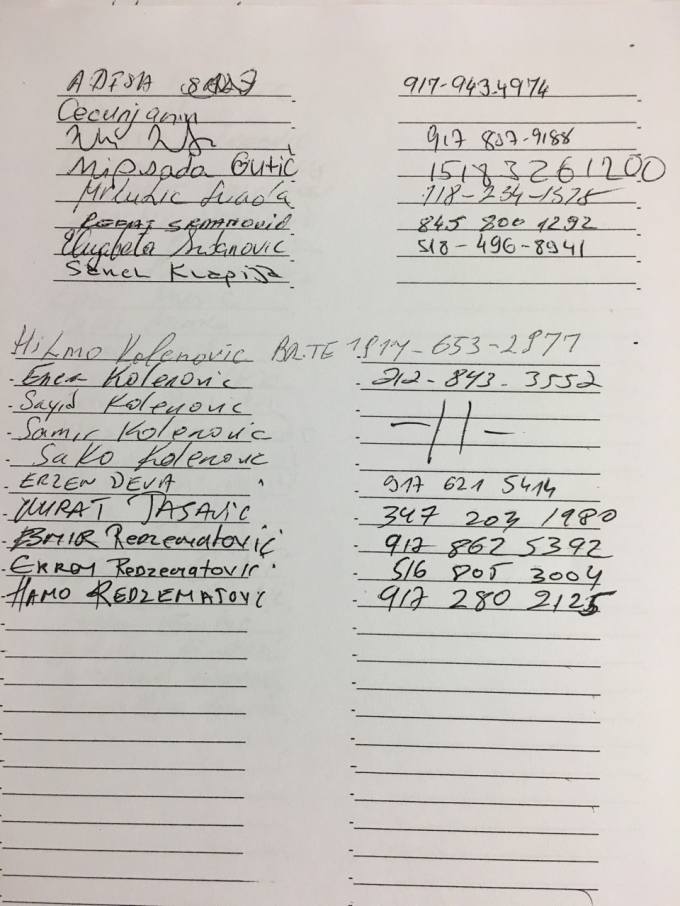 ADISA 917-943-4974
Cecunjanin
917 837-9188
Mipsada Gutić 15183261200
Suada 718-234-1525
845 800 1292
Srdanovic 518-496-8941
Sanel Krapija
Hilmo Kolenovic BR.TE 1917-653-2977
Enea Kolenovic 212-843-3552
Sayid Kolenovic
Samir Kolenovic -||-
Sako Kolenovic
ERZEN DEVA 917 621 5414
MURAT TASAVIC 347 203 1980
BMIR Redzematović 917 862 5392
EKREM REDZEMATOVIC 516 805 3004
HAMO REDZEMATOVIC 917 280 2125